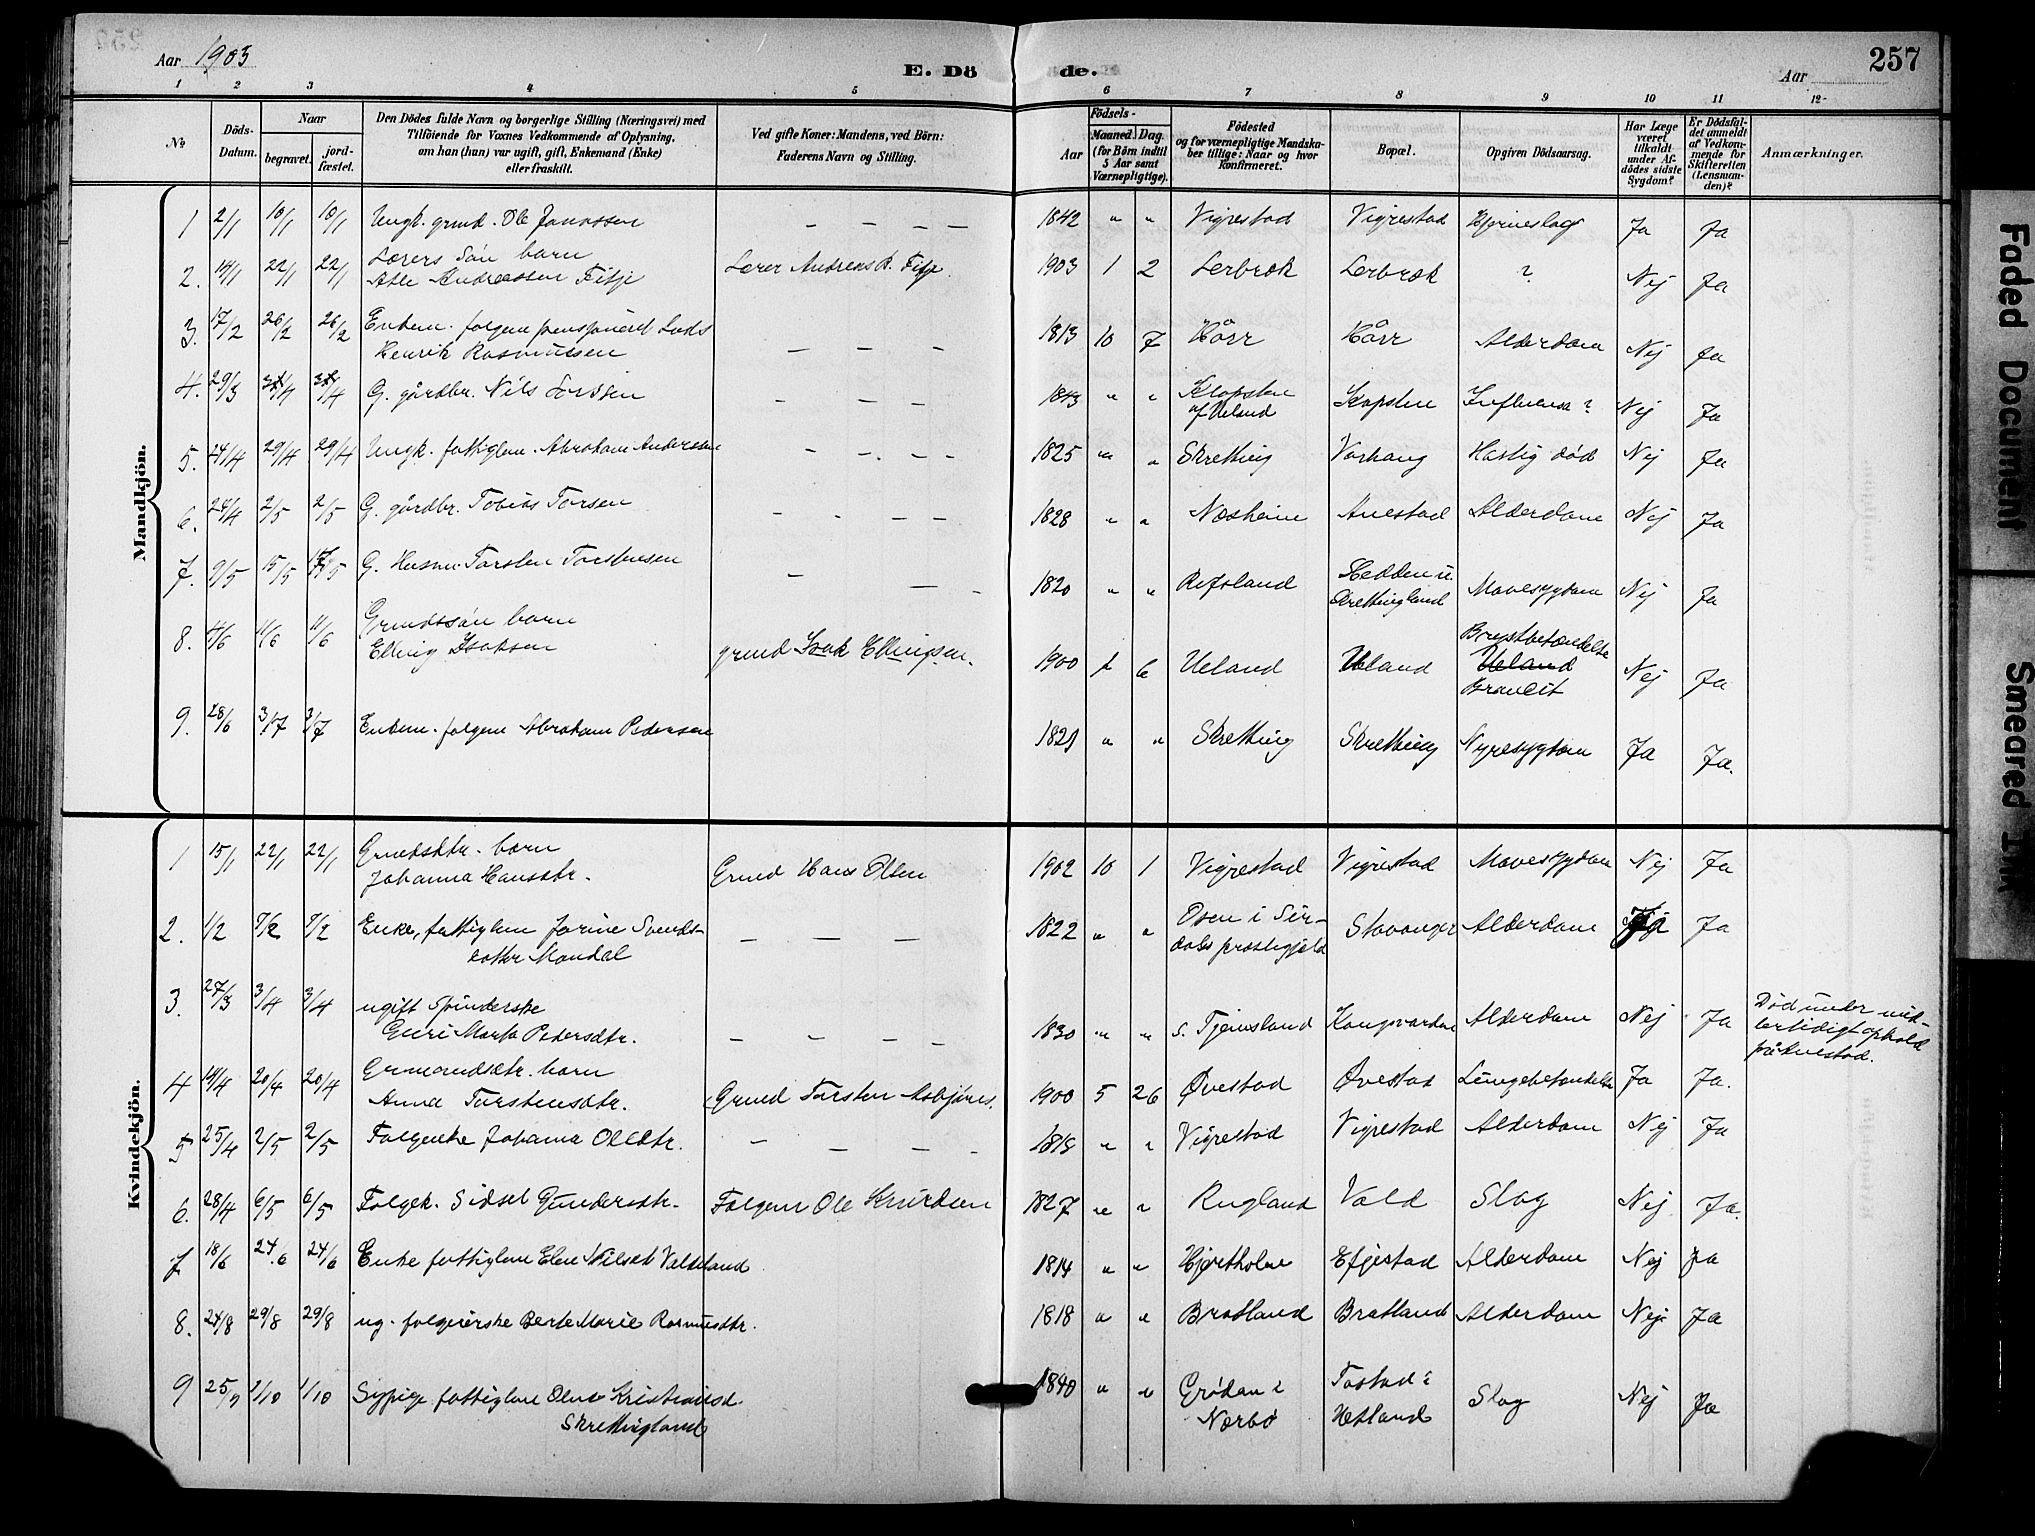 Aar 1903
E. Dö de.
257
Aar
1 2 3 4 5 6 7 8 9 10 11 12
№
Döds-Datum.
Naar
begravet.
jord-fæstet.
Den Dödes fulde Navn og borgerlige Stilling (Næringsvei) med
Tilföiende for Voxnes Vedkommende af Oplysning,
om han (hun) var ugift, gift, Enkemand (Enke)
eller fraskilt.
Ved gifte Koner: Mandens, ved Börn:
Faderens Navn og Stilling.
Födsels-
Aar
Maaned. Dag.
(for Börn indtil
5 Aar samt
Værnepligtige).
Födested
og for værnepligtige Mandska-
ber tillige: Naar og hvor
Konfirmeret.
Bopæl.
Opgiven Dödsaarsag.
Har Læge
været
tilkaldt
under Af-
dödes sidste
Sygdom?
Er Dödsfal-
det anmeldt
af Vedkom-
mende for
Skifteretten
(Lensman-
den)?
Anmærkninger.
Mandkjön.
1 2/1 10/1 10/1 Ungk. grmd. Ole Jonassen — — — — 1842 " " Vigrestad Vigrestad Hjerneslag Ja Ja
2. 14/1 22/1 22/1 Lærers Søn barn
Atle Andreassen Fitje Lærer Andreas R. Fitje. 1903 1 2 Lerbræk Lerbræk ? Nej Ja
3. 17/2 26/2 26/2 Enkem. folgem. pensjoneret Lods
Henrik Rasmussen — — — 1813 10 7 Hårr Hårr Alderdom Nej Ja
4. 29/3 G. gårdbr. Nils — — — 1843 " " Klopsten
af Ueland Kopsten Influensa? Nej Ja
5. 24/4 29/4 29/4 Ungk. fattiglem. Abraham Andersen — — — — 1825 " " Skretting Varhaug Hastig død Nej Ja
6. 24/4 2/5 2/5 G. gårdbr. Tobias Torsen — — — — 1828 " " Næsheim Anestad Alderdom Nej Ja
7. 9/5 15/5 G. Husm. Torsten Torstensen — — — 1820 " " Refsland Hedden u.
Skrettingland Mavesygdom Nej Ja
8. 4/6 11/6 11/6 Grmdssøn barn
Elling Isaksen grmd Isak Ellingsen. 1900 1 6 Ueland Ueland Brystbetændelse
Ueland
Nej Ja
9. 28/6 3/7 3/7 Enkem. folgem Abraham Pedersen 1821 " " Skretting Skretting Nyresygdom Ja Ja.
Kvindekjön.
1 15/1 22/1 22/1 Grmdsdtr. barn
Johanna Hansdtr. Grmd Hans Olsen 1902 10 1 Vigrestad Vigrestad Mavesygdom Nej Ja
2. 1/2 7/2 7/2 Enke, fattiglem Jorine Svends-
datter Mandal — — — 1822 " " Osen i Sir-
dals præstegjeld Stavanger Alderdom Ja
3. 27/3 3/4 3/4 ugift Spinderske
Guri Marta Pedersdtr. — — — — 1830 " " S. Tjemsland Kongsvarden Alderdom Nej Ja Død under mid-
lertidigt ophold
på Anestad.
4 14/4 20/4 20/4 Grmandsdtr. barn
Anna Torstensdtr. Grmd Torsten Asbjørns. 1900 5 26 Øvestad Øvestad Lungebetændelse Ja Ja.
5 25/4 2/5 2/5 Folgenke Johanna Olsdtr. — — — — 1818 " " Vigrestad Vigrestad Alderdom Nej Ja
6. 28/4 6/5 6/5 Folgek. Sidsel Gundersdtr. Folgem Ole Knudsen 1827 " " Rugland Vold Slag Nej Ja.
7 18/6 24/6 24/6 Enke fattiglem Elen Nilsdt Valdeland 1814 " " Hjertholm Efjestad Alderdom Nej Ja
8. 24/8 29/8 29/8 ug. folgeierske Berte Marie Rasmusdtr. 1818 " " Bratland Bratland Alderdom Nej Ja
9 25/9 1/10 1/10 Sypige fattiglem Olene Kristiansd.
Skrettingland 1840 " " Grødem i
Nærbø Tastad i
Hetland Slag Nej Ja
Faded Document
Smeared Ink